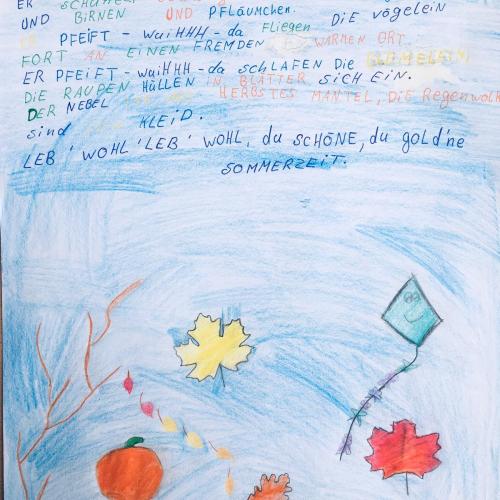 ER SCHÜTTEL
UND BIRNEN UND PFLÄUMCHEN.
ER PFEIFT - waiHHH - da Fliegen DiE vögelein
FORT AN EINEN FREMDEN WARMEN ORT.
ER PFEiFT - waiHHH - da SCHLAFEN DiE BLÜMELEIN,
DiE RAUPEN HÜLLEN iN BLÄTTER SICH EiN.
DER NEBEL HERBSTES MANTEL, DiE Regenwolk
sind KLEiD.
LEB' WOHL 'LEB' WOHL, du SCHÖNE, du gold'ne
SOMMERZEiT.